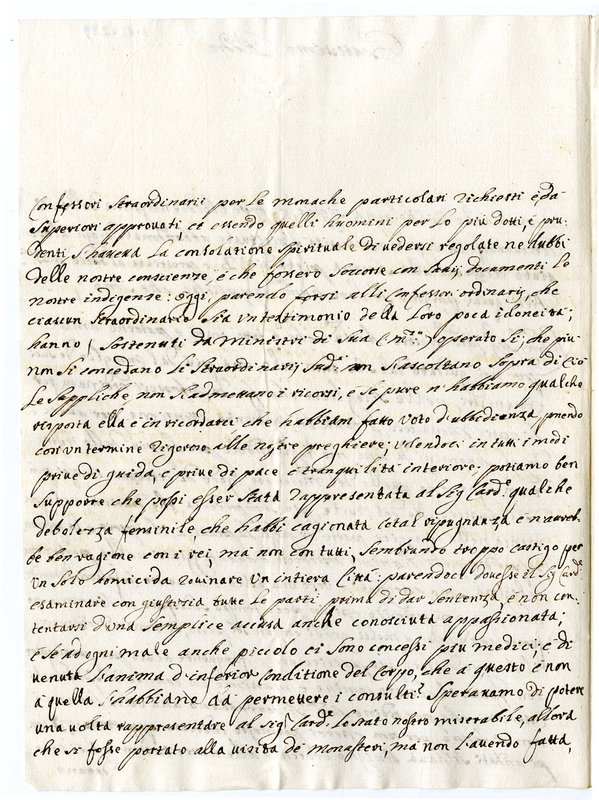 Confessori straordinarii per le monache particolari richiesti e da
superiori approvati, et essendo quelli huomini per lo più dotti, e pru-
denti, s'haveva la consolatione spirituale di vedersi regolate ne dubbi
delle nostre conscienze, e che fossero soccorse con savij documenti le
nostre indigenze: oggi, parendo forsi alli Confessori ordinarij, che
ciascun straordinario sia un testimonio della loro poca idoneità;
hanno (sostenuti da Ministri di sua Em.za) operato si, che più
non si concedano li straordinarij sud.i non s'ascoltano sopra di ciò
le suppliche, non s'admettano i ricorsi, e se pure n'habbiamo qualche
risposta ella è in ricordarci che habbiam fatto voto d'ubbedienza ponendo
con un termine rigoroso alle nostre preghiere; vedendoci in tutti i modi
prive di guida, e prive di pace e tranquilità interiore: potiamo ben
supporre che possi esser stata rappresentata al Sig.r Card.e qualche
debolezza feminile, che habbi cagionata cotal ripugnanza e n'avreb-
be ben ragione con i rei, ma non con tutti, sembrando troppo castigo per
un solo homicida rovinare un intiera Città: parendoci dovesse il Sig.r Card.e
esaminare con giustizia tutte le parti prima di dar sentenza, e non con-
tentarsi d'una semplice accusa anche conosciuta appassionata;
e se ad ogni male anche piccolo ci sono concessi più medici; è di
venuta l'anima d'inferior conditione del corpo, che a questo e non
a quella s'habbiano da permettere i consulti? Speravamo di potere
una volta rappresentare al Sig.r Card.e lo stato nostro miserabile, allora
che si fosse portato alla visita de' monasteri, ma non l'avendo fatta,